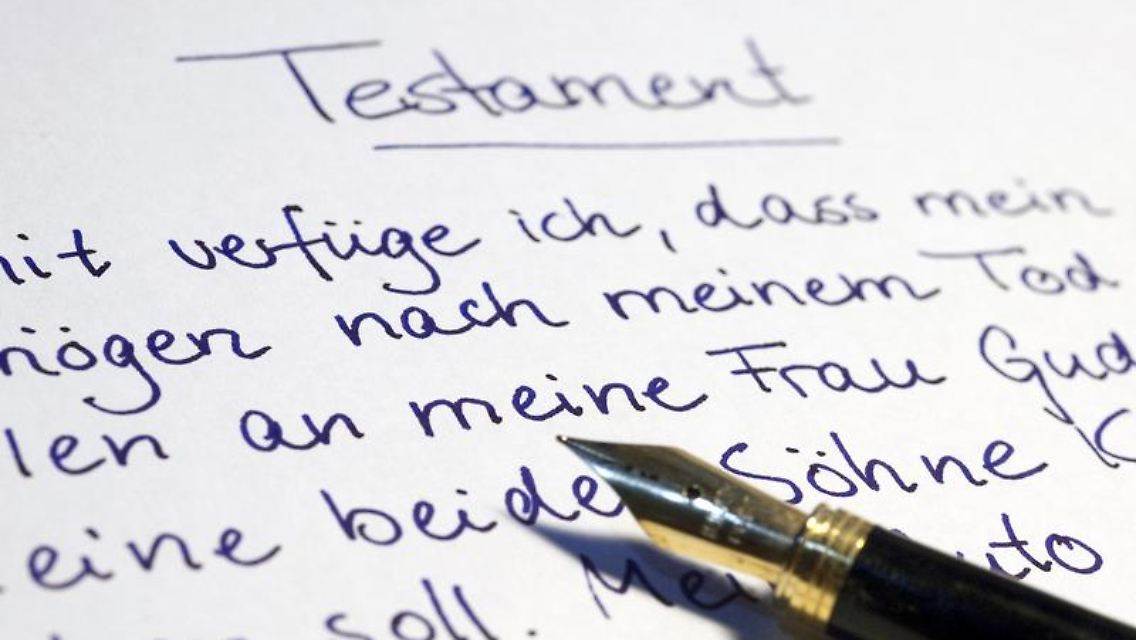 Testament
mit verfüge ich, dass mein
mögen nach meinem Tod
len an meine Frau Gud
eine beide Söhne K
soll. Mein Auto